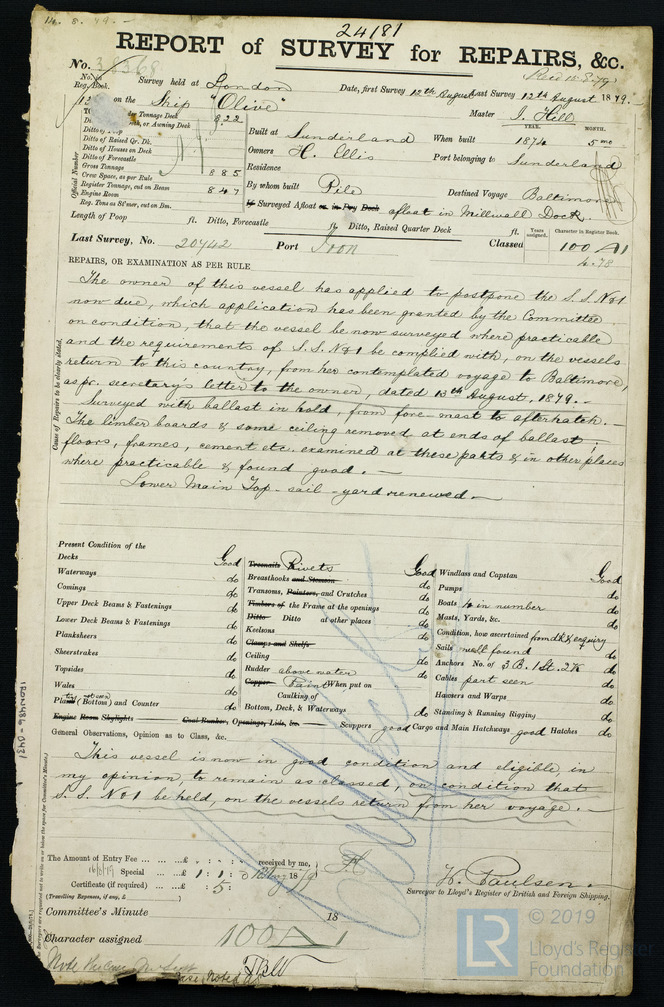 24181
REPORT of SURVEY for REPAIRS, &c.
No. in Reg. Book. Survey held at London Date, first Survey 12th August Last Survey 12th August 1879.
on the Ship "Olive" Master J. Hill
Tonnage Deck 822
or Awning Deck
Ditto of Poop
Ditto of Raised Qr. Dk.
Ditto of Houses on Deck
Ditto of Forecastle
Gross Tonnage 885
Crew Space, as per Rule
Register Tonnage, cut on Beam 847
Engine Room
Reg. Tons as St'mer, cut on Bm.
Official Number
YEAR. MONTH.
Built at Sunderland When built 1874 5 mo
Owners H. Ellis Port belonging to Sunderland
Residence
By whom built Pile Destined Voyage Baltimore
If Surveyed Afloat or in Dry Dock afloat in Millwall Dock.
Length of Poop ft. Ditto, Forecastle ft. Ditto, Raised Quarter Deck ft.
Years assigned. Character in Register Book.
Last Survey, No. 20742 Port Iron Classed 100 A1
4.78
REPAIRS, OR EXAMINATION AS PER RULE
Cause of Repairs to be clearly stated.
The owner of this vessel has applied to postpone the S.S. No 1
now due, which application has been granted by the Committee
on condition, that the vessel be now surveyed where practicable
and the requirements of S.S. No 1 be complied with, on the vessels
return to this country, from her contemplated voyage to Baltimore,
as pr. secretary's letter to the owner, dated 13th August, 1879. -
Surveyed with ballast in hold, from fore-mast to afterhatch. -
The limber boards & some ceiling removed at ends of ballast ;
floors, frames, cement etc. examined at these parts & in other places
where practicable & found good. -
Lower Main Top-sail-yard renewed -
Present Condition of the
Decks Good
Waterways do
Comings do
Upper Deck Beams & Fastenings do
Lower Deck Beams & Fastenings do
Planksheers do
Sheerstrakes do
Topsides do
Wales do
(Bottom) and Counter do
Engine Room Skylights Coal Bunker, Openings, Lids, &c. Scuppers good
Treenails Rivets Good
Breasthooks and Stemson do
Transoms, Pointers, and Crutches do
Timbers of the Frame at the openings do
Ditto Ditto at other places do
Keelsons do
Clamps and Shelfs
Ceiling do
Rudder above water do
Copper Paint When put on
Caulking of
Bottom, Deck, & Waterways do
Windlass and Capstan Good
Pumps do
Boats 4 in number do
Masts, Yards, &c. do
Condition, how ascertained from dk & enquiry
Sails well found do
Anchors No. of 3 B. 1 St. 2 K do
Cables part seen do
Hawsers and Warps do
Standing & Running Rigging do
Cargo and Main Hatchways good Hatches do
General Observations, Opinion as to Class, &c.
This vessel is now in good condition and eligible in
my opinion, to remain as classed, on condition that
S.S. No 1 be held, on the vessels return from her voyage. -
The Amount of Entry Fee £ : : received by me,
Special £ 1 : 1 : 0 1879
Certificate (if required) £ : 5 :
(Travelling Expenses, if any, £ )
W. Paulsen.
Surveyor to Lloyd's Register of British and Foreign Shipping.
Committee's Minute 18
Character assigned 100 A1
IRON486-0431
© 2019
LR
Lloyd's Register
Foundation